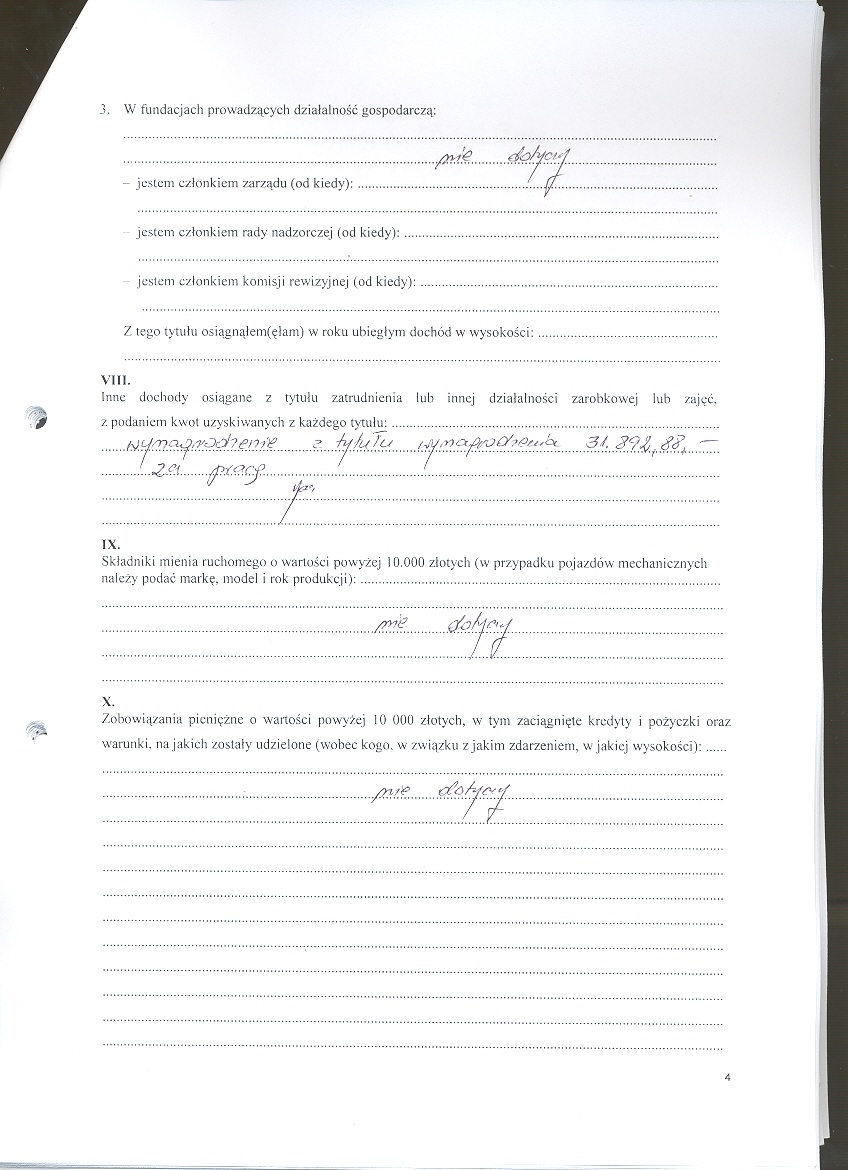 3. W fundacjach prowadzących działalność gospodarczą:
nie dotyczy
– jestem członkiem zarządu (od kiedy):
– jestem członkiem rady nadzorczej (od kiedy):
– jestem członkiem komisji rewizyjnej (od kiedy):
Z tego tytułu osiągnąłem(ęłam) w roku ubiegłym dochód w wysokości:
VIII.
Inne dochody osiągane z tytułu zatrudnienia lub innej działalności zarobkowej lub zajęć,
z podaniem kwot uzyskiwanych z każdego tytułu:
wynagrodzenie z tytułu wynagrodzenia 31.892,88,–
za pracę
IX.
Składniki mienia ruchomego o wartości powyżej 10.000 złotych (w przypadku pojazdów mechanicznych
należy podać markę, model i rok produkcji):
nie dotyczy
X.
Zobowiązania pieniężne o wartości powyżej 10 000 złotych, w tym zaciągnięte kredyty i pożyczki oraz
warunki, na jakich zostały udzielone (wobec kogo, w związku z jakim zdarzeniem, w jakiej wysokości):
nie dotyczy
4